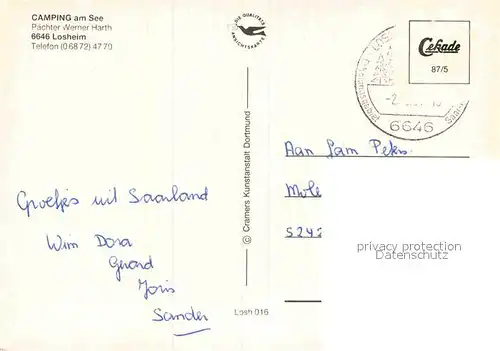 CAMPING am See
Pächter Werner Harth
6646 Losheim
Telefon (0 68 72) 47 70
DIE QUALITÄTS
ANSICHTSKARTE
Cekade
87/5
6646
© Cramers Kunstanstalt Dortmund
Aan Fam Peters
Mole
5242
privacy protection
Datenschutz
Groetjes uit Saarland
Wim Dora
Gerard
Joris
Sander
Losh 016